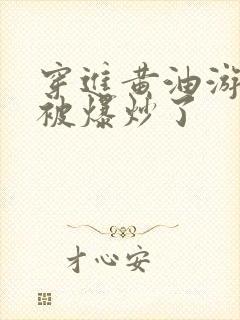 穿进黄油游
被爆炒了
才心安